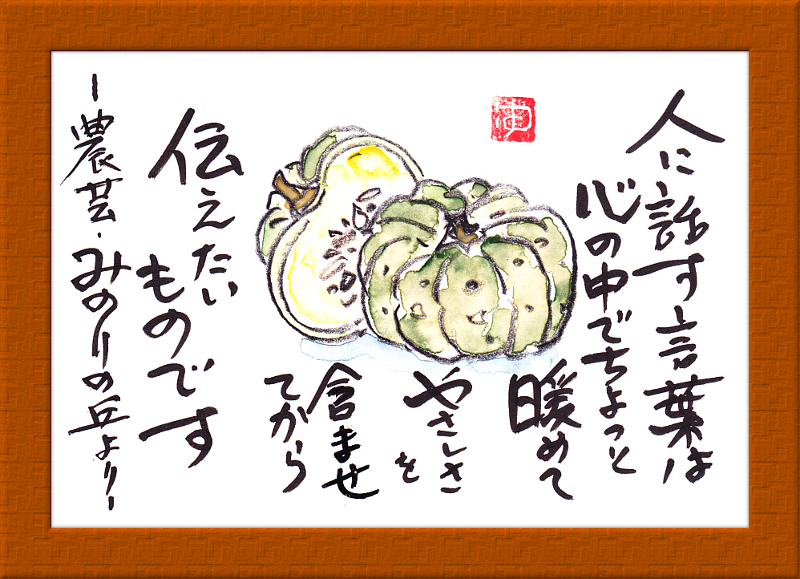 人に話す言葉は
心の中でちょっと
暖めて
やさしさ
を
含ませ
てから
伝えたい
ものです
ー農芸・みのりの丘よりー